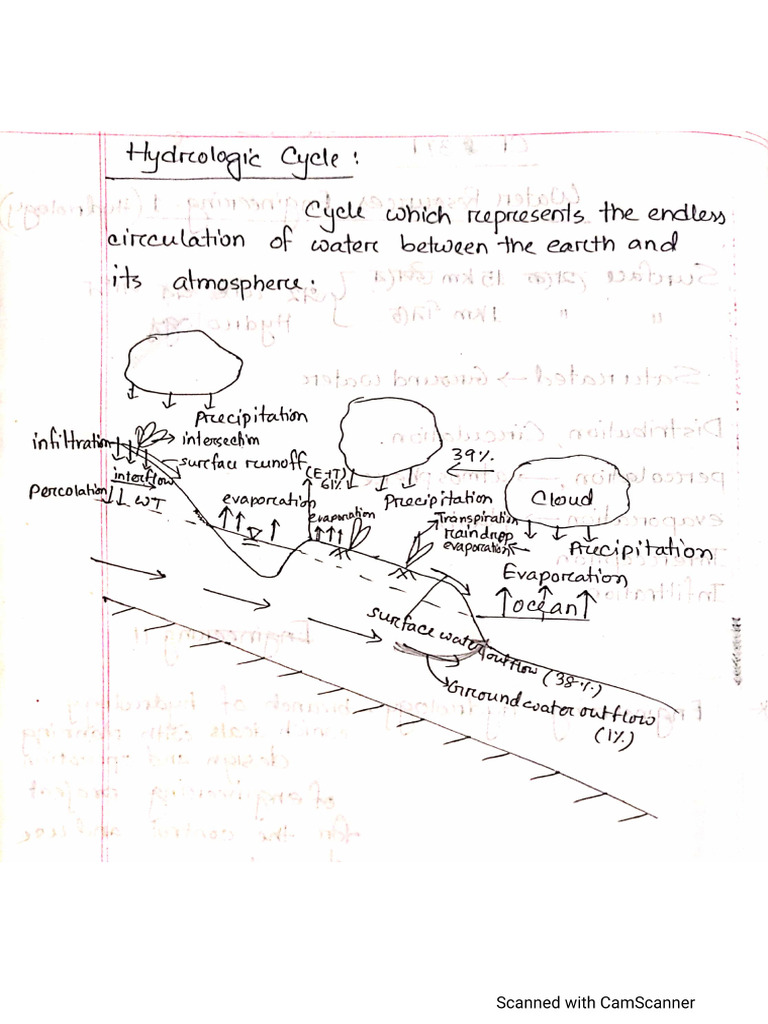 Hydrologic Cycle:
Cycle which represents the endless
circulation of water between the earth and
its atmosphere.
Precipitation
infiltration
intersection
surface runoff
interflow
Percolation
WT
evaporation
(E+T)
61%
evaporation
Precipitation
39%
Cloud
Transpiration
raindrop
evaporation
Precipitation
Evaporation
ocean
surface water outflow (38%)
Ground water outflow
(1%)
Scanned with CamScanner